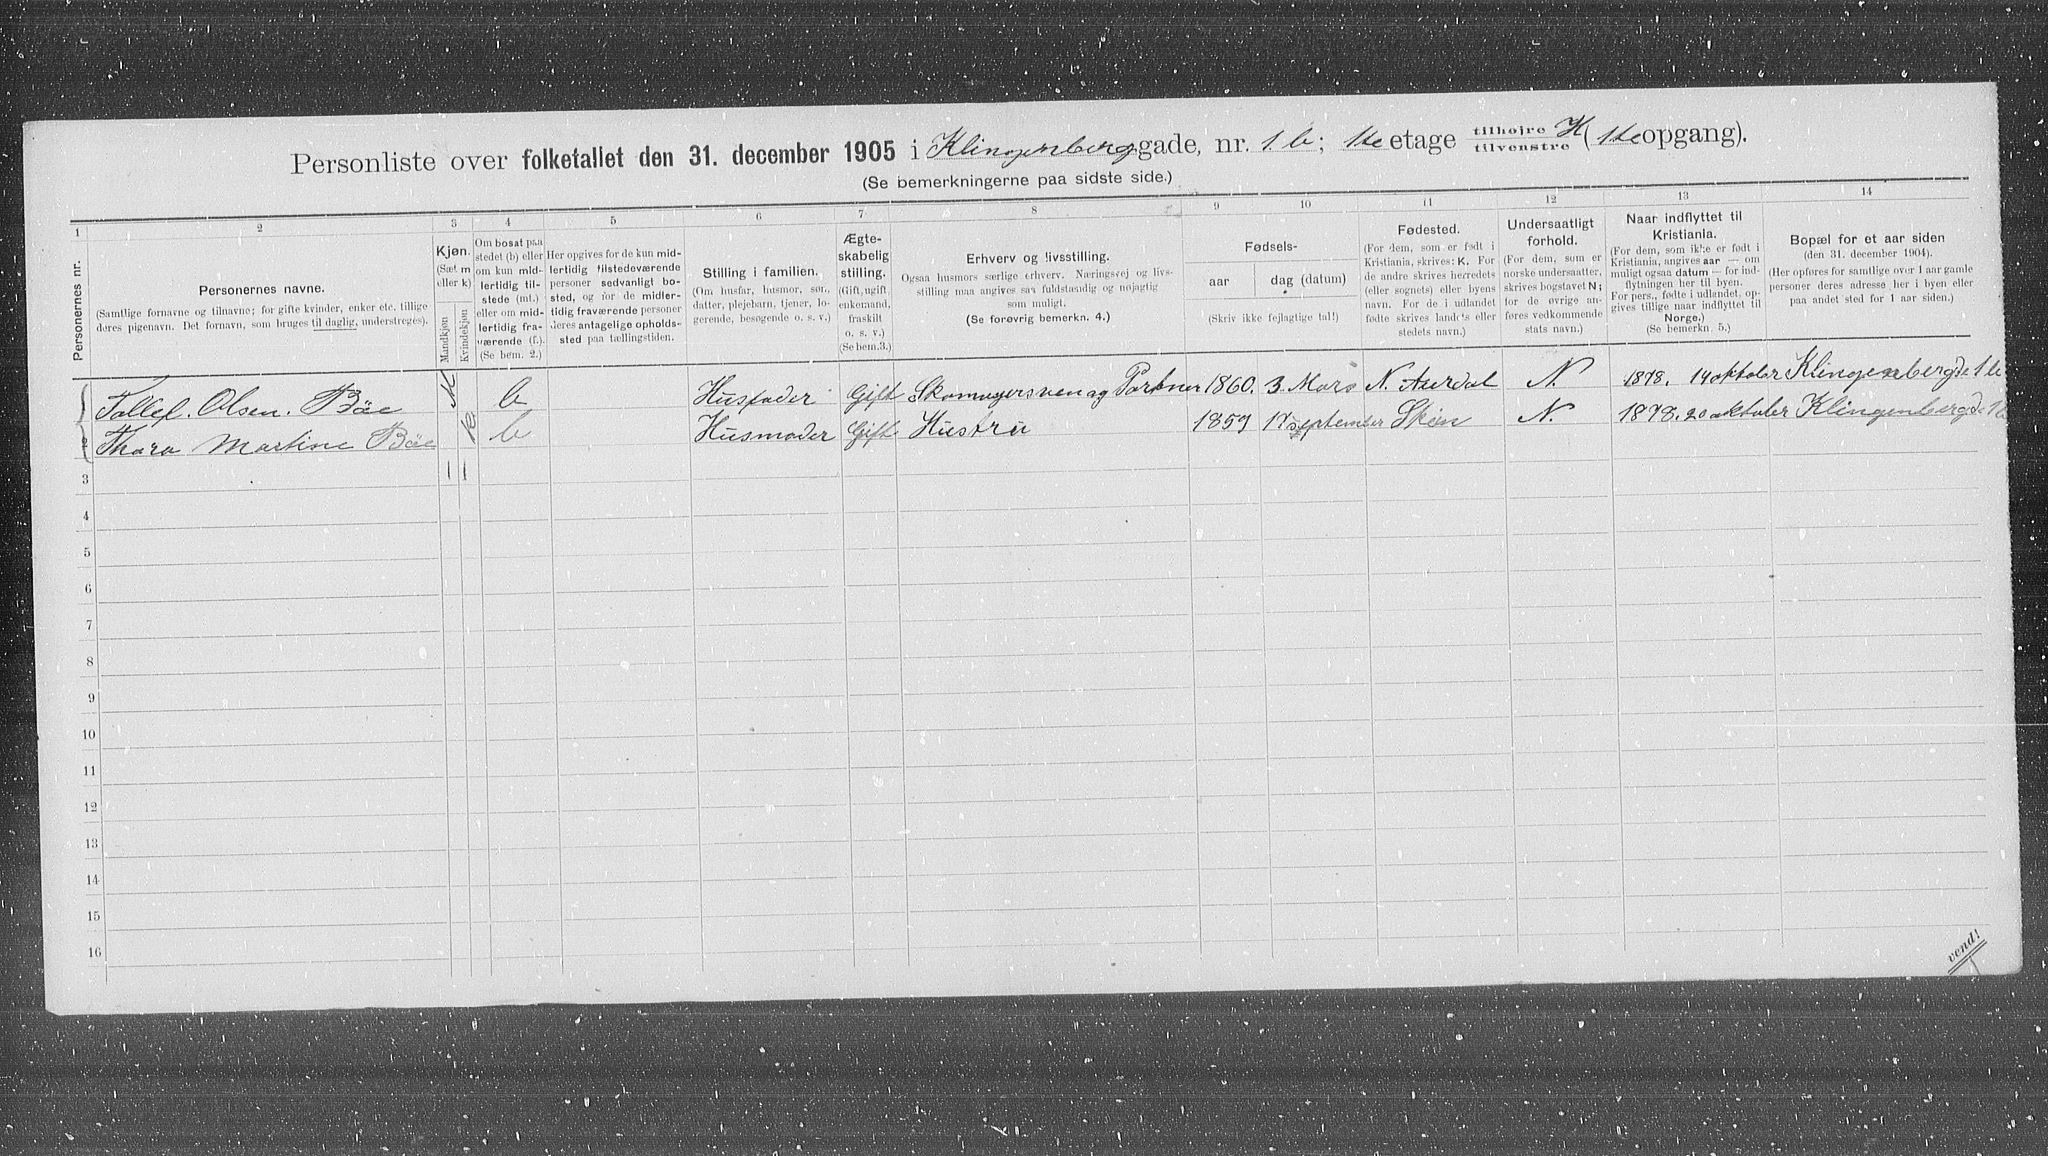 Personliste over folketallet den 31. december 1905 i Klingenberggade, nr. 1 b; 1ste etage tilhøjre tilvenstre H (1ste opgang).
(Se bemerkningerne paa sidste side.)
1 2 3 4 5 6 7 8 9 10 11 12 13 14
Personernes nr.
Personernes navne.
(Samtlige fornavne og tilnavne; for gifte kvinder, enker etc. tillige
deres pigenavn. Det fornavn, som bruges til daglig, understreges).
Kjøn.
(Sæt m
eller k)
Mandkjøn
Kvindekjøn
Om bosat paa
stedet (b) eller
om kun mid-
lertidig til-
stede (mt.)
eller om mid-
lertidig fra-
værende (f.).
(Se bem. 2.)
Her opgives for de kun mid-
lertidig tilstedeværende
personer sedvanligt bo-
sted, og for de midler-
tidig fraværende personer
deres antagelige opholds-
sted paa tællingstiden.
Stilling i familien.
(Om husfar, husmor, søn,
datter, plejebarn, tjener, lo-
gerende, besøgende o. s. v.)
Ægte-
skabelig
stilling.
(Gift, ugift,
enkemand,
fraskilt
o. s. v.)
(Se bem. 3.)
Erhverv og livsstilling.
Ogsaa husmors særlige erhverv. Næringsvej og livs-
stilling maa angives saa fuldstændig og nøjagtig
som muligt.
(Se forøvrig bemerkn. 4.)
Fødsels-
aar
dag (datum)
(Skriv ikke fejlagtige tal!)
Fødested.
(For dem, som er født i
Kristiania, skrives: K. For
de andre skrives herredets
(eller sognets) eller byens
navn. For de i udlandet
fødte skrives landets eller
stedets navn.)
Undersaatligt
forhold.
(For dem, som er
norske undersaatter,
skrives bogstavet N;
for de øvrige an-
føres vedkommende
stats navn.)
Naar indflyttet til
Kristiania.
(For dem, som ikke er født i
Kristiania, angives aar — om
muligt ogsaa datum — for ind-
flytningen her til byen.
For pers., fødte i udlandet, op-
gives tillige naar indflyttet til
Norge.)
(Se bemerkn. 5.)
Bopæl for et aar siden
(den 31. december 1904).
(Her opføres for samtlige over 1 aar gamle
personer deres adresse her i byen eller
paa andet sted for 1 aar siden.)
Tollef. Olsen. Böe M b Husfader Gift Skomagersven og Portner 1860. 3 Mars N. Aurdal N. 1878. 14 oktober Klingenbergde 1 b
2 Thora Martine Böe K b Husmoder Gift Hustru 1859 17 september Skien N. 1878. 20 oktober Klingenbergde 1 b
3
4
5
6
7
8
9
10
11
12
13
14
15
16
vend!